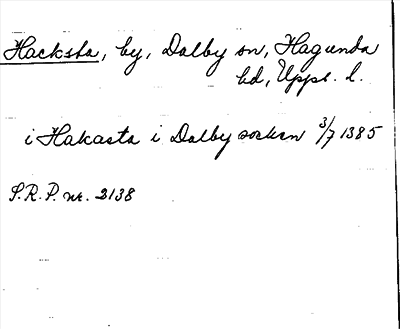 Hacksta, by, Dalby sn, Hagunda
hd, Uppl. l.
i Hakasta i Dalby sockn 3/7 1385
S.R.P. nr. 2138